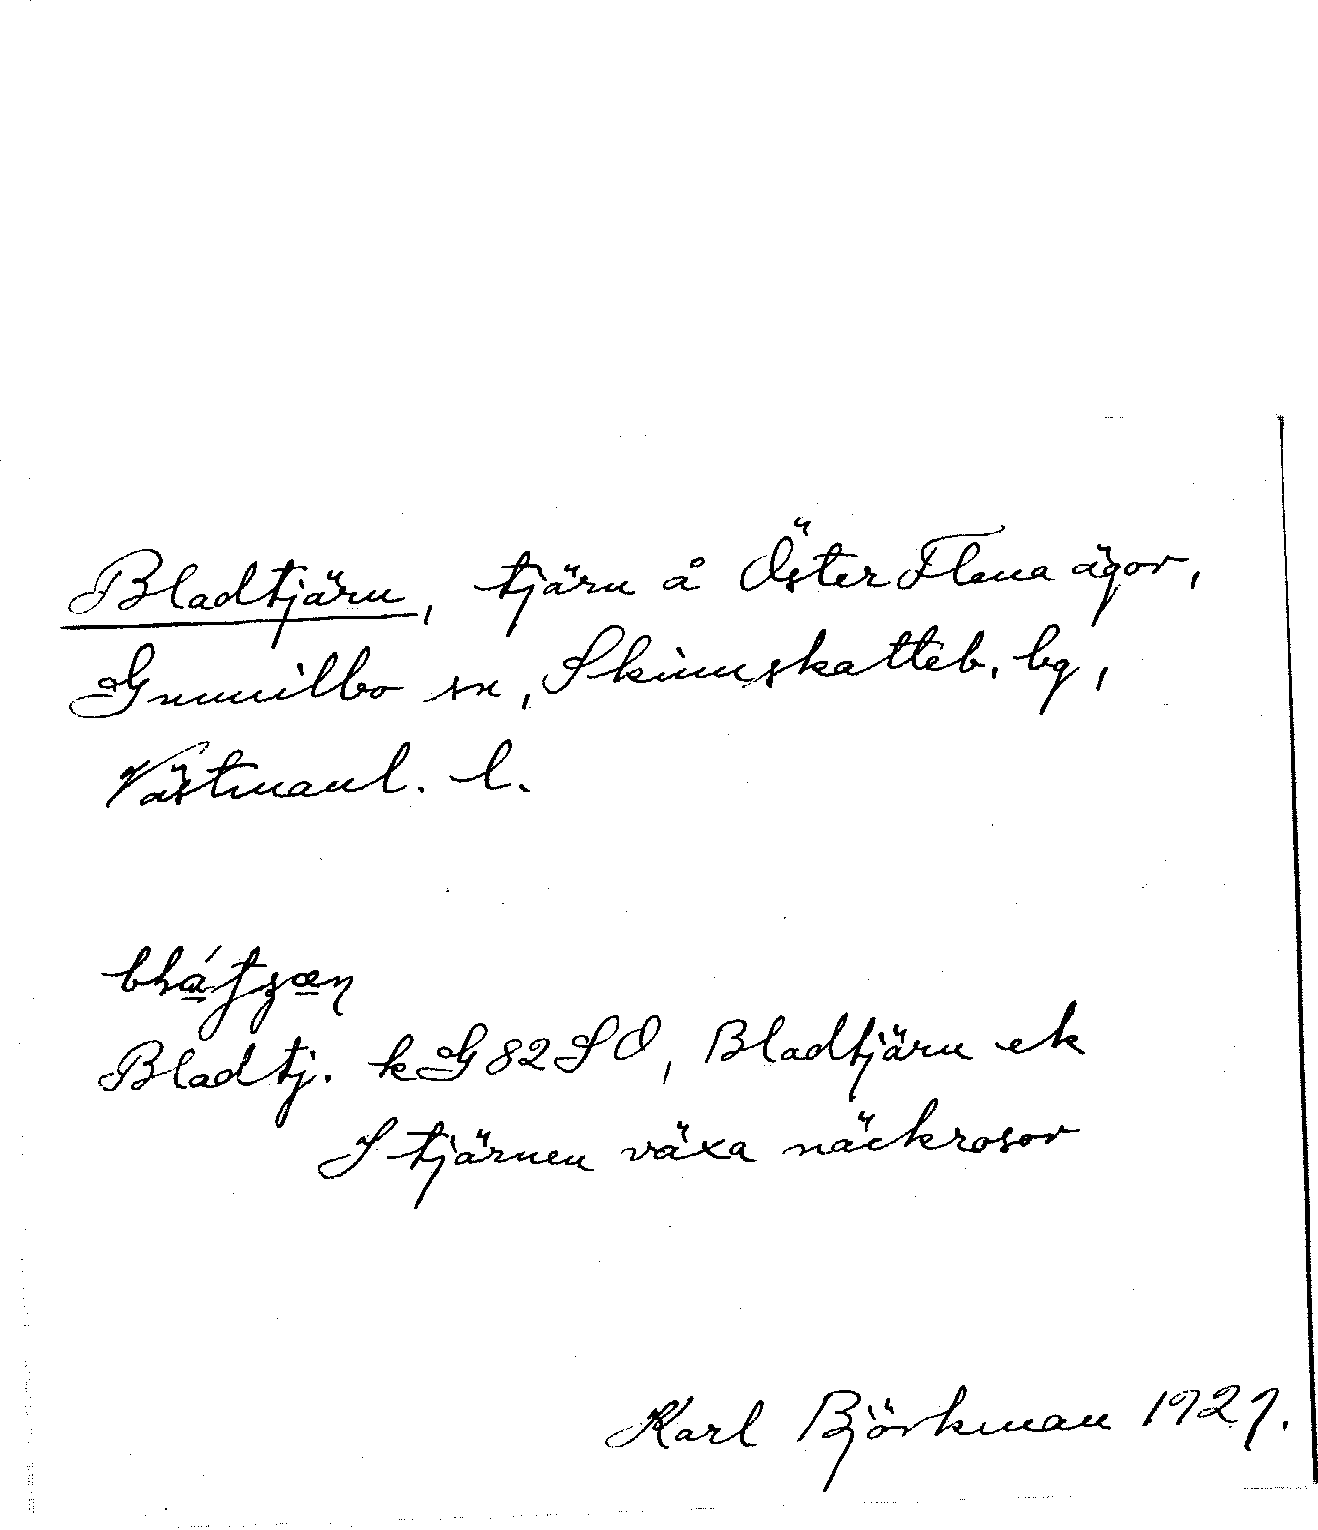 Bladtjärn, tjärn å Öster Flena ägor,
Gunnilbo sn, Skinnskatteb. bg,
Västmanl. l.
Bladtj. kG82SO, Bladtjärn ek
I tjärnen växa näckrosor
Karl Björkman 1927.